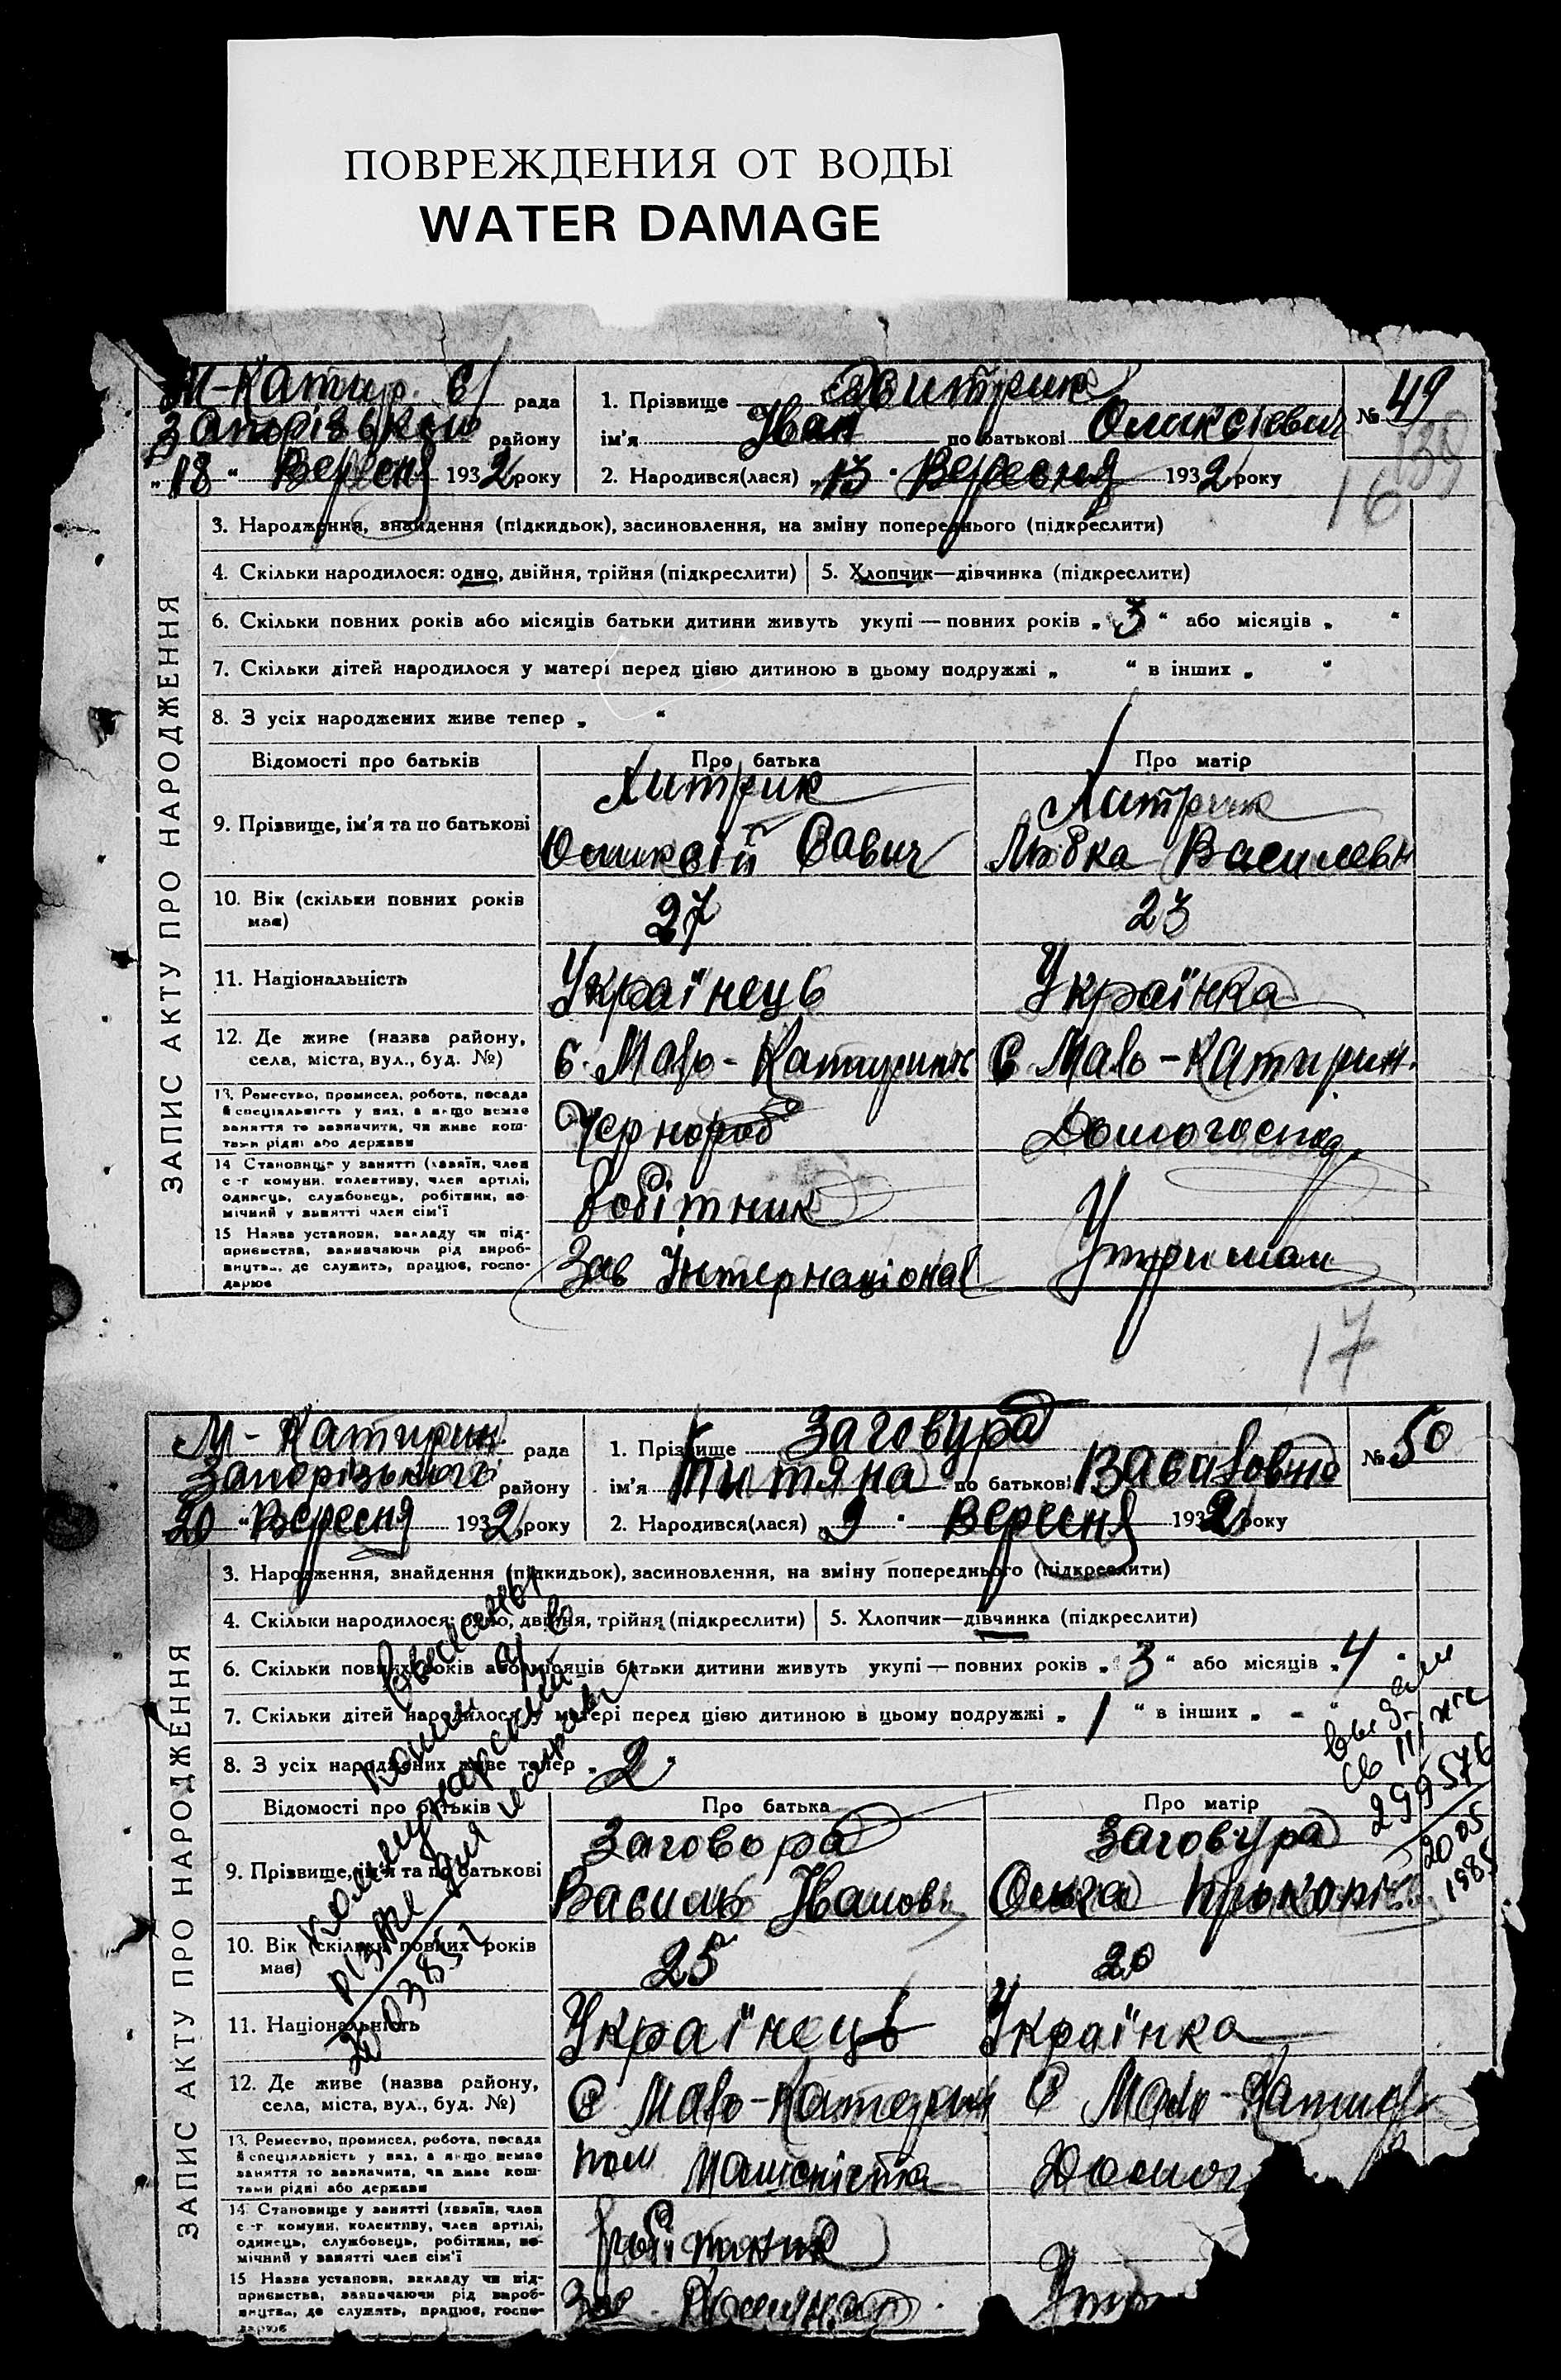 ПОВРЕЖДЕНИЯ ОТ ВОДЫ
WATER DAMAGE
М-Катир. с/ рада
Запорізьком району
„18" Вересня 1932 року
1. Прізвище Хитрик
ім'я Іван по батькові Оликсієвич
№ 49
139
2. Народився(лася) „13" Вересня 1932 року
16
ЗАПИС АКТУ ПРО НАРОДЖЕННЯ
3. Народження, знайдення (підкидьок), засиновлення, на зміну попереднього (підкреслити)
4. Скільки народилося: одно, двійня, трійня (підкреслити) 5. Хлопчик—дівчинка (підкреслити)
6. Скільки повних років або місяців батьки дитини живуть укупі — повних років „3" або місяців „ "
7. Скільки дітей народилося у матері перед цією дитиною в цьому подружжі „ " в інших „ "
8. З усіх народжених живе тепер „ "
Відомості про батьків Про батька Про матір
9. Прізвище, ім'я та по батькові
Хитрик
Оликсій Савич
Хитрик
Любка Василевн
10. Вік (скільки повних років має) 27 23
11. Національність Українець Українка
12. Де живе (назва району, села, міста, вул., буд. №) с. Мало-Катирин С Мало-Катирин.
13. Ремество, промисел, робота, посада й спеціяльність у них, а якщо немає заняття то зазначити, чи живе коштами рідні або держави
Чернороб Домогоспод
14 Становище у занятті (хазяїн, член с-г комуни, колективу, член артілі, одинець, службовець, робітник, помічний у занятті член сім'ї
Робітник
15 Назва установи, закладу чи підприємства, зазначаючи рід виробництва, де служить, працює, господарює
Зав Інтернаціонал Утриман
17
М- Катирин. рада
Запорізького району
20 "Вересня 1932 року
1. Прізвище Заговура
ім'я Титяна по батькові Василовна
№ 50
2. Народився(лася) „9" Вересня 1932 року
ЗАПИС АКТУ ПРО НАРОДЖЕННЯ
3. Народження, знайдення (підкидьок), засиновлення, на зміну попереднього (підкреслити)
4. Скільки народилося: одно, двійня, трійня (підкреслити) 5. Хлопчик—дівчинка (підкреслити)
6. Скільки повних років або місяців батьки дитини живуть укупі — повних років „3" або місяців „4"
7. Скільки дітей народилося у матері перед цією дитиною в цьому подружжі „1" в інших „-"
8. З усіх народжених живе тепер „2"
299576
2005
1985
Відомості про батьків Про батька Про матір
9. Прізвище, ім'я та по батькові
Заговора
Василь Іванов.
Заговура
Ольга
10. Вік (скільки повних років має) 25 20
11. Національність Українець Українка
12. Де живе (назва району, села, міста, вул., буд. №) С Мало-Катерин С Мало-
13. Ремество, промисел, робота, посада й спеціяльність у них, а якщо немає заняття то зазначити, чи живе коштами рідні або держави
пом Машиніста Домог
14. Становище у занятті (хазяїн, член с-г комуни, колективу, член артілі, одинець, службовець, робітник, помічний у занятті член сім'ї
робітник
15 Назва установи, закладу чи підприємства, зазначаючи рід виробництва, де служить, працює, господарює
Зав Комунар Утр